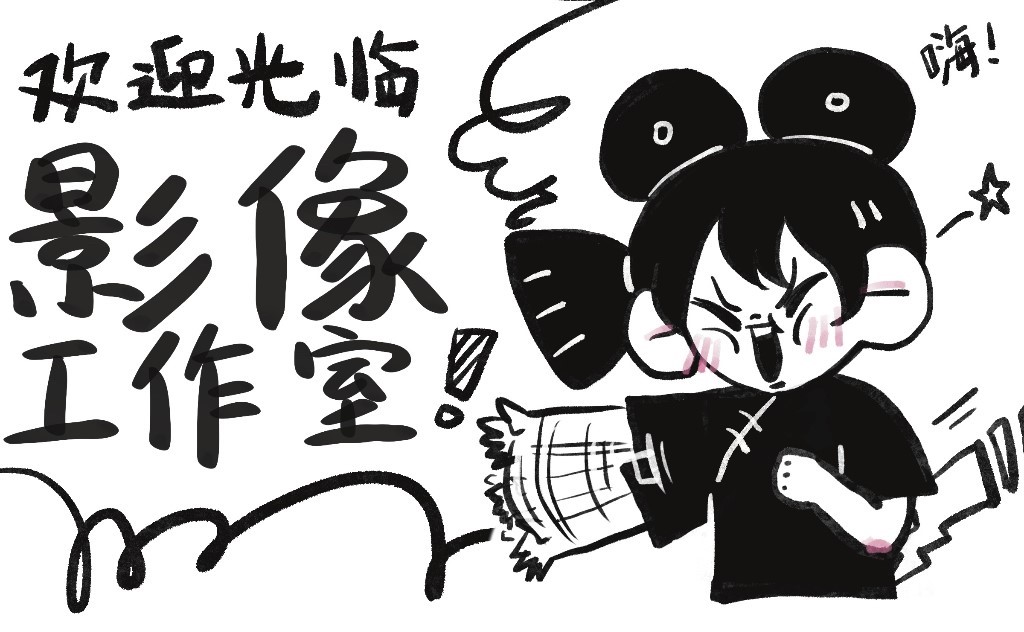 欢迎光临
影像
工作室!
嗨!